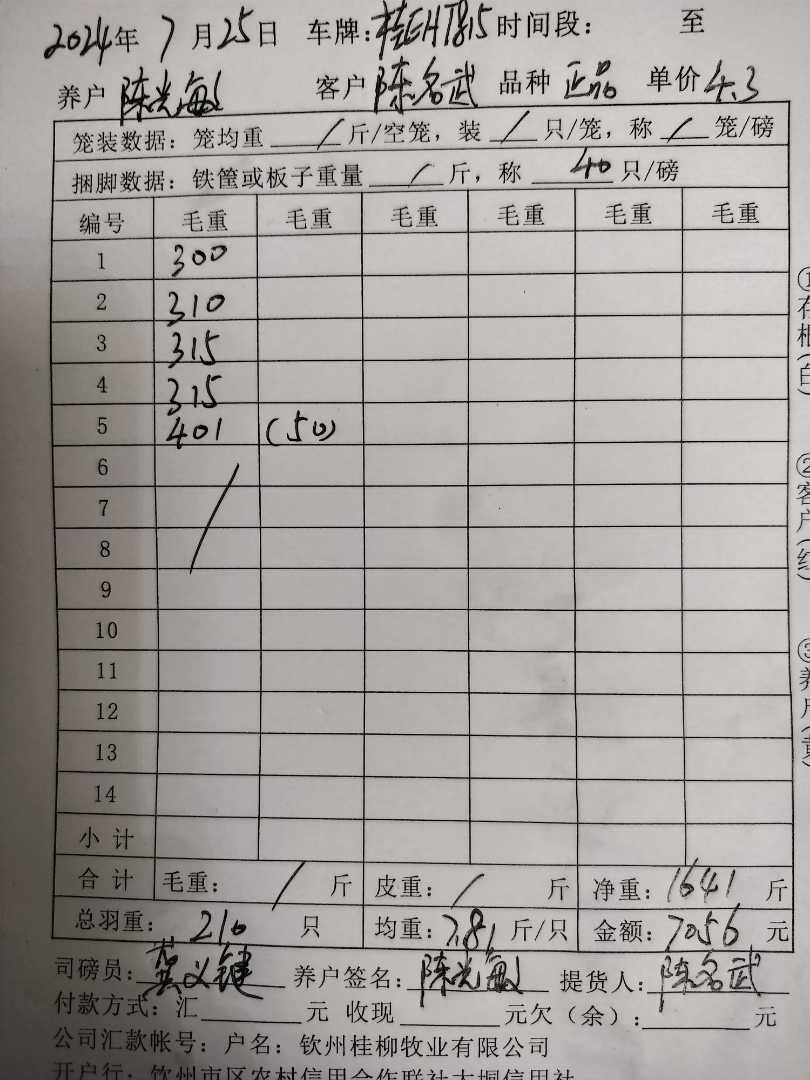 2024年 7月25日 车牌:桂EHT815 时间段: 至
养户 陈光敏 客户 陈名武 品种 正品 单价 4.3
笼装数据:笼均重 / 斤/空笼,装 / 只/笼,称 / 笼/磅
捆脚数据:铁筐或板子重量 / 斤,称 40 只/磅
编号 毛重 毛重 毛重 毛重 毛重 毛重
1 300
2 310
3 315
4 315
5 401 (50)
6
7
8
9
10
11
12
13
14
小计
合计 毛重: / 斤 皮重: / 斤 净重: 1641 斤
总羽重: 210 只 均重: 7.81 斤/只 金额: 7056 元
司磅员: 义键 养户签名: 陈光敏 提货人: 陈名武
付款方式:汇 元 收现 元欠(余): 元
公司汇款帐号:户名:钦州桂柳牧业有限公司
开户行:钦州市区农村信用合作联社大垌信用社
①存根(白)
②客户(红)
③养户(黄)